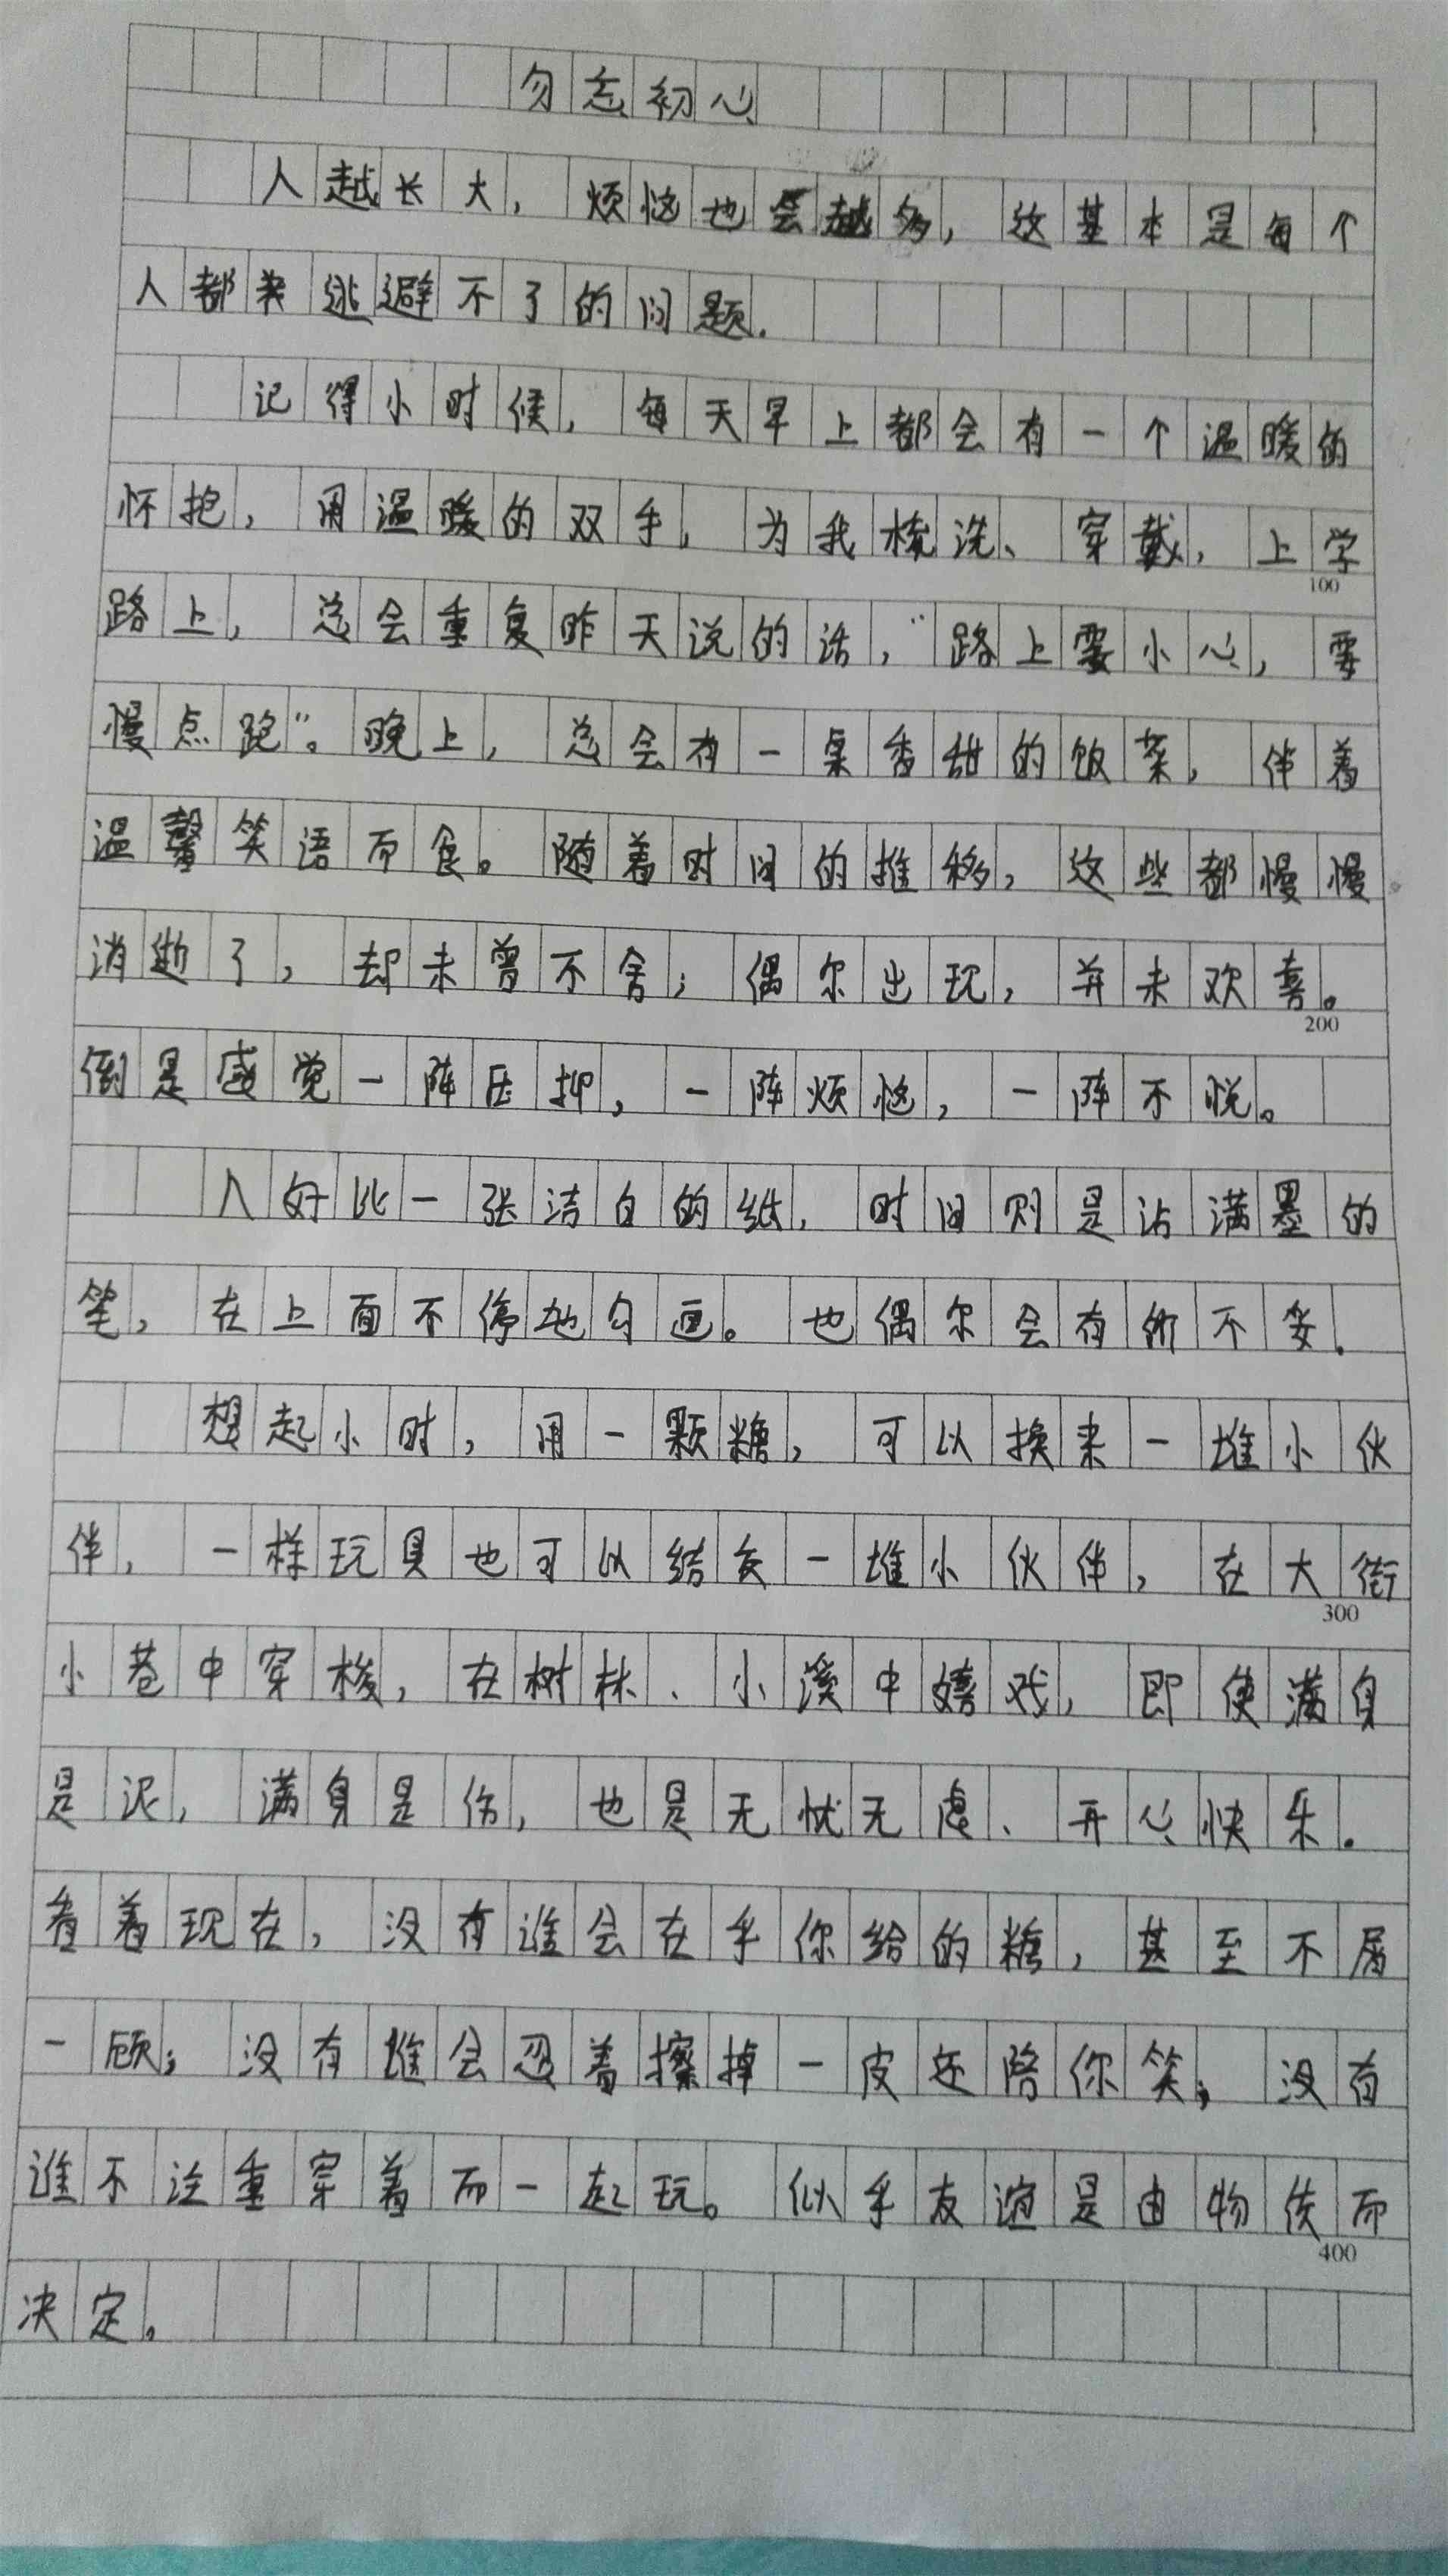 勿忘初心
人越长大，烦恼也会越多，这基本是每个
人都逃避不了的问题.
记得小时候，每天早上都会有一个温暖的
怀抱，用温暖的双手，为我梳洗、穿戴，上学
100
路上，总会重复昨天说的话，“路上要小心，要
慢点跑”。晚上，总会有一桌香甜的饭菜，伴着
温馨笑语而食。随着时间的推移，这些都慢慢
消逝了，却未曾不舍；偶尔出现，并未欢喜。
200
倒是感觉一阵压抑，一阵烦恼，一阵不悦。
人好比一张洁白的纸，时间则是沾满墨的
笔，在上面不停地勾画。也偶尔会有所不妥.
想起小时，用一颗糖，可以换来一堆小伙
伴，一样玩具也可以结交一堆小伙伴，在大街
300
小巷中穿梭，在树林、小溪中嬉戏，即使满身
是泥，满身是伤，也是无忧无虑、开心快乐.
看着现在，没有谁会在乎你给的糖，甚至不屑
一顾；没有谁会忍着擦掉一皮还陪你笑；没有
谁不注重穿着而一起玩。似乎友谊是由物质而
400
决定。